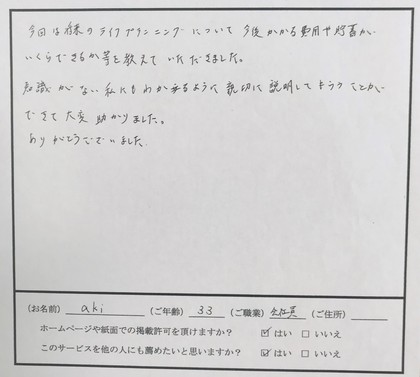 今回は将来のライフプランニングについて今後かかる費用や貯蓄が
いくらできるか等を教えていただきました。
知識がない私にもわかるように親切に説明してもらうことが
できて大変助かりました。
ありがとうございました。
(お名前) aki (ご年齢) 33 (ご職業) 会社員 (ご住所)
ホームページや紙面での掲載許可を頂けますか? ☑はい □いいえ
このサービスを他の人にも薦めたいと思いますか? ☑はい □いいえ